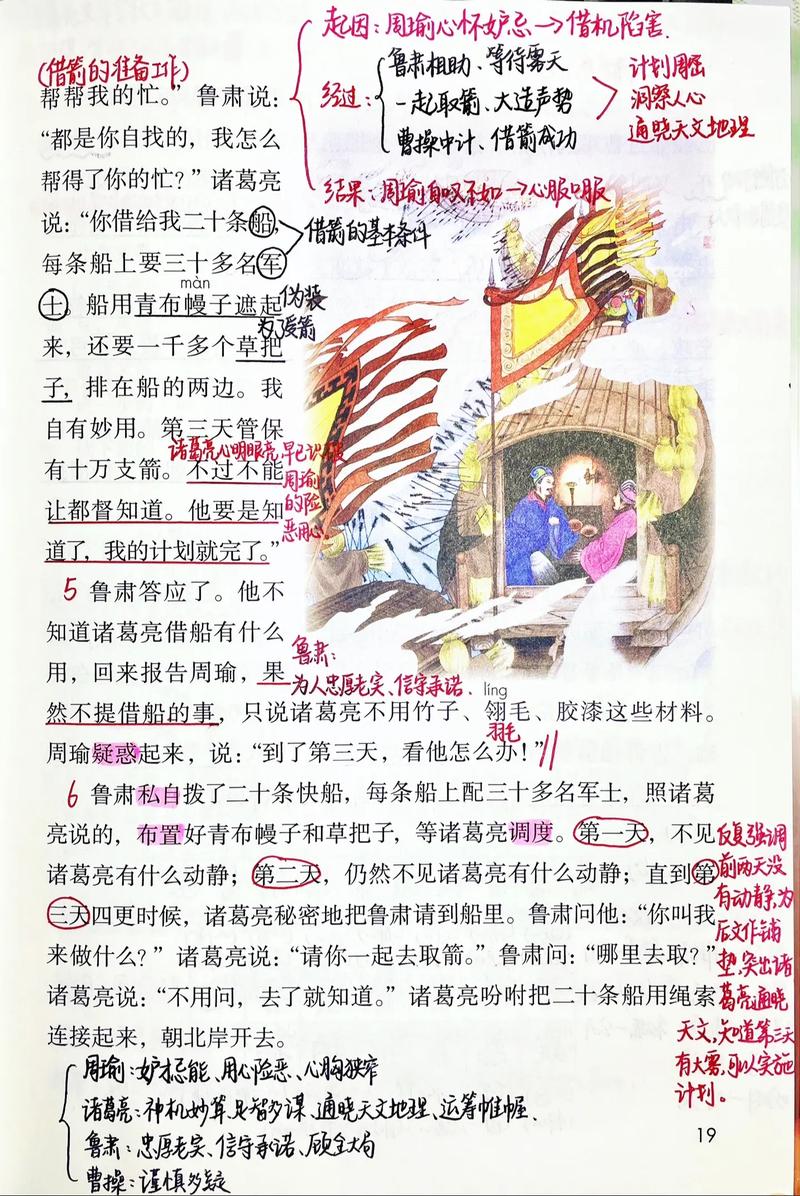 起因：周瑜心怀妒忌→借机陷害.
经过：
鲁肃相助、等待雾天
一起取箭、大造声势
曹操中计、借箭成功
计划周密
洞察人心
通晓天文地理
结果：周瑜自叹不如→心服口服
(借箭的准备工作)
帮帮我的忙。”鲁肃说：
“都是你自找的，我怎么
帮得了你的忙？”诸葛亮
说：“你借给我二十条船，
每条船上要三十多名军
借箭的基本条件
màn
士。船用青布幔子遮起
伪装
为了受箭
来，还要一千多个草把
子，排在船的两边。我
自有妙用。第三天管保
诸葛亮心明眼亮,早已识破
周瑜
的险
恶用心。
有十万支箭。不过不能
让都督知道。他要是知
道了，我的计划就完了。”
5 鲁肃答应了。他不
知道诸葛亮借船有什么
用，回来报告周瑜，果
鲁肃：
为人忠厚老实、信守承诺.
líng
然不提借船的事，只说诸葛亮不用竹子、翎毛、胶漆这些材料。
羽毛
周瑜疑惑起来，说：“到了第三天，看他怎么办！”
6 鲁肃私自拨了二十条快船，每条船上配三十多名军士，照诸葛
亮说的，布置好青布幔子和草把子，等诸葛亮调度。第一天，不见
诸葛亮有什么动静；第二天，仍然不见诸葛亮有什么动静；直到第
三天四更时候，诸葛亮秘密地把鲁肃请到船里。鲁肃问他：“你叫我
来做什么？”诸葛亮说：“请你一起去取箭。”鲁肃问：“哪里去取？”
诸葛亮说：“不用问，去了就知道。”诸葛亮吩咐把二十条船用绳索
连接起来，朝北岸开去。
反复强调
前两天没
有动静,为
后文作铺
垫,突出诸
葛亮通晓
天文,知道第三天
有大雾,可以实施
计划。
周瑜：妒才忌能、用心险恶、心胸狭窄
诸葛亮：神机妙算、足智多谋、通晓天文地理、运筹帷幄.
鲁肃：忠厚老实、信守承诺、顾全大局
曹操：谨慎多疑
19